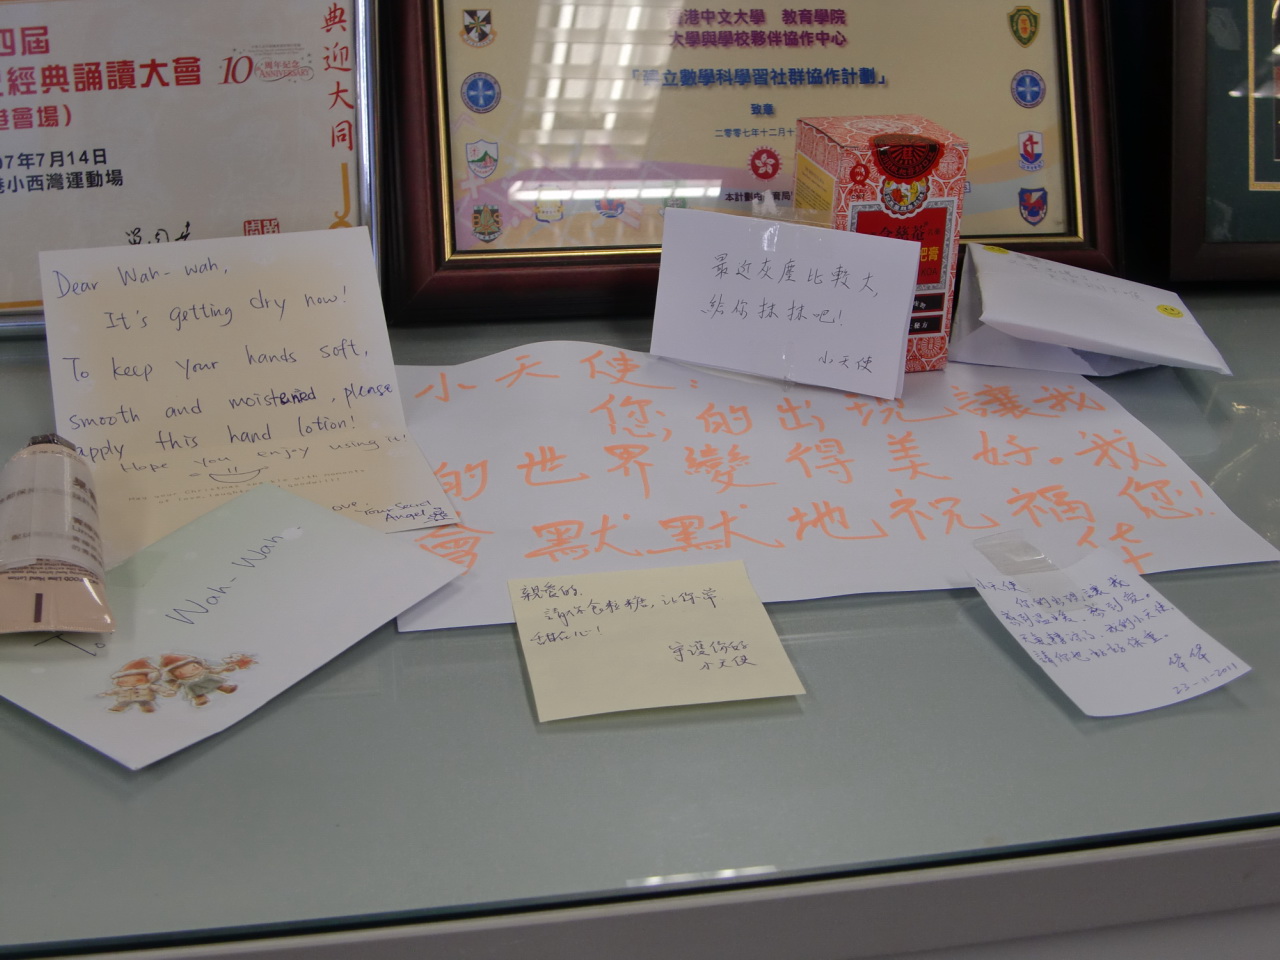 四屆
經典誦讀大會
10周年紀念
ANNIVERSARY
港會場）
07年7月14日
港小西灣運動場
典迎大同
香港中文大學 教育學院
大學與學校夥伴協作中心
「建立數學科學習社群協作計劃」
致意
二零零七年十二月十
本計劃由
Dear Wah-wah,
It's getting dry now!
To keep your hands soft,
smooth and moistened, please
apply this hand lotion!
Hope you enjoy using it!
Your Secret
Angel
To
Wah-Wah
最近灰塵比較大,
給你抹抹吧!
小天使
枇杷膏
小天使:
您的出現讓我
的世界變得美好。我
會默默地祝福您!
華
親愛的,
請你食粒糖,让你笑
甜在心!
守護你的
小天使
小天使
你的出現讓我
感到溫暖,感到愛。
天氣轉涼了,我的小天使,
請你也好好保重。
華華
23-11-2011